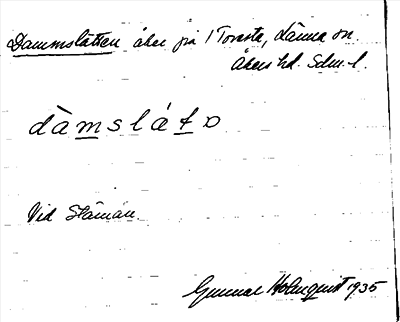 Dammslåtten åker på 1 Toresta, Länna sn.
Åkers hd. Sdm. l.
dàmslát
Vid Stämån.
Gunnar Holmquist 1935